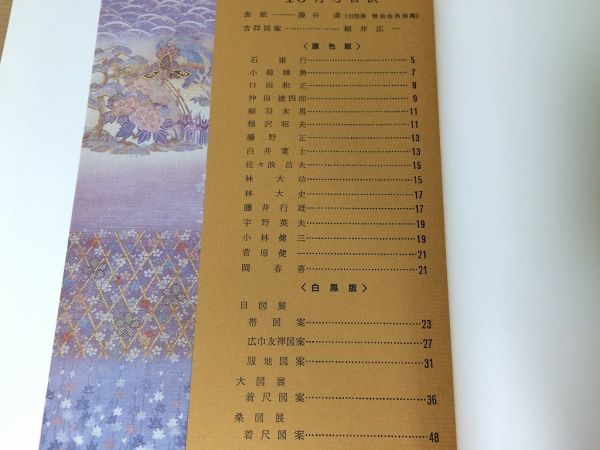 10月号目次
表紙………藤谷 滋(日図展 賛助会員推薦)
吉祥図案………細井広一
〈原色版〉
石甫行………5
小椋輝勝………7
口田和正………9
仲田徳四郎………9
細羽末男………11
稲沢昭夫………11
藤野正………13
白井寛士………13
佐々浪昌夫………15
林大功………15
林大史………17
藤井行雄………17
宇野英夫………19
小林健三………19
菅原健一………21
岡春喜………21
〈白黒版〉
日図展
帯図案………23
広巾友禅図案………27
服地図案………31
大図展
着尺図案………36
桑図展
着尺図案………48